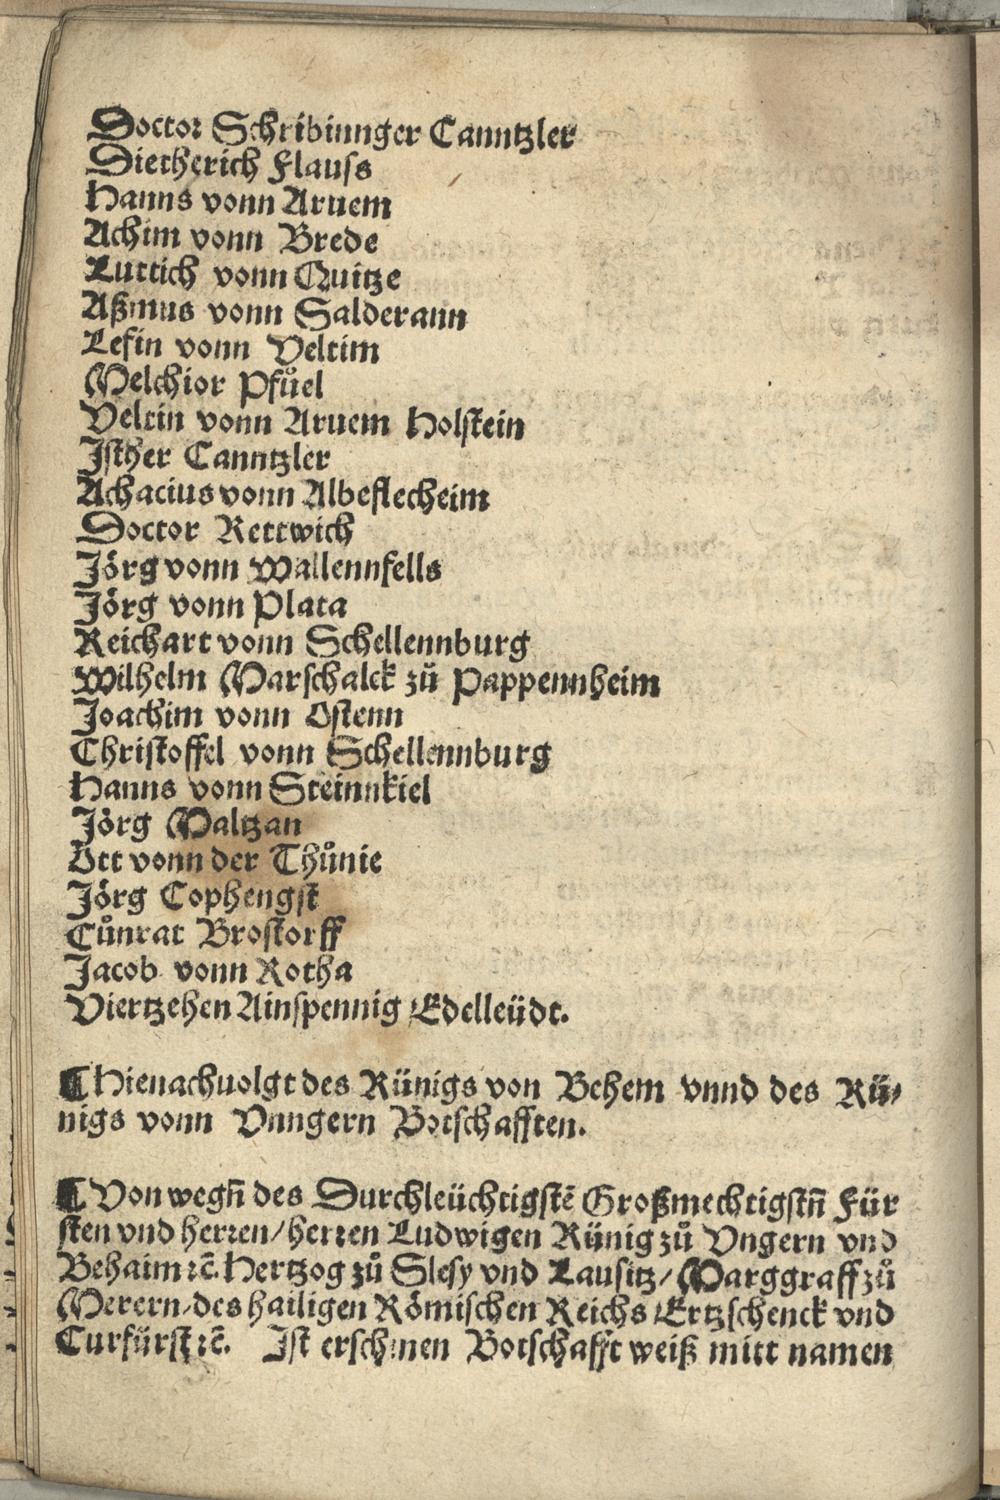 Doctor Schribinnger Canntzler
Dietherich Flauss
Hanns vonn Aruem
Achim vonn Brede
Luttich vonn Quitze
Aßmus vonn Salderann
Lefin vonn Veltim
Melchior Pfůel
Veltin vonn Aruem Holstein
Jsther Canntzler
Achacius vonn Albeflecheim
Doctor Rettwich
Jörg vonn Wallennfells
Jörg vonn Plata
Reichart vonn Schellennburg
Wilhelm Marschalck zů Pappennheim
Joachim vonn Ostenn
Christoffel vonn Schellennburg
Hanns vonn Steinnkiel
Jörg Maltzan
Ott vonn der Thůnie
Jörg Cophengst
Cůnrat Brostorff
Jacob vonn Rotha
Viertzehen Ainspennig Edelleüdt.
¶ Hienachuolgt des Künigs von Behem vnnd des Kü⸗
nigs vonn Vnngern Botschafften.
¶ Von wegn̄ des Durchleüchtigstē Großmechtigstn̄ Für
sten vnd herren/herren Ludwigen Künig zů Vngern vnd
Behaim ⁊c̄. Hertzog zů Slesy vnd Lausitz/Marggraff zů
Merern/des hailigen Römischen Reichs Ertzschenck vnd
Curfürst ⁊c̄. Jst erschinen Botschafft weiß mitt namen